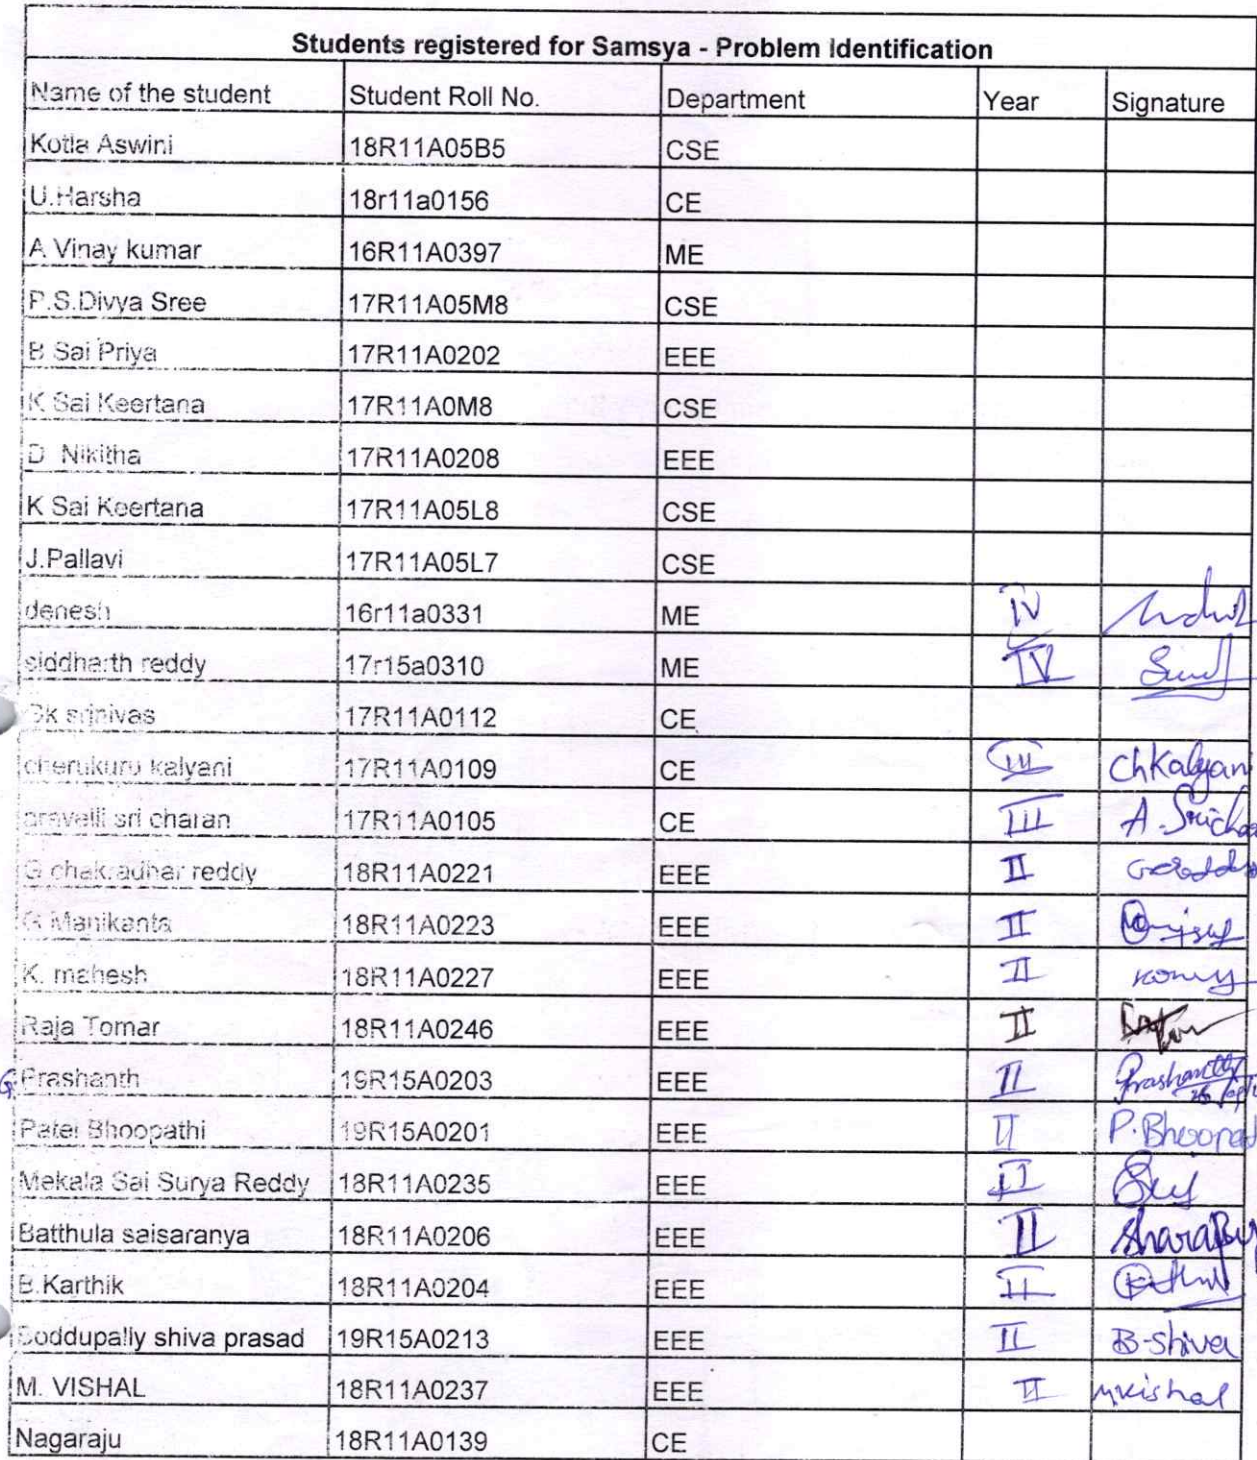 Students registered for Samsya - Problem Identification
Name of the student Student Roll No. Department Year Signature
Kotla Aswini 18R11A05B5 CSE
U.Harsha 18r11a0156 CE
A Vinay kumar 16R11A0397 ME
P.S.Divya Sree 17R11A05M8 CSE
B Sai Priya 17R11A0202 EEE
K Sai Keertana 17R11A0M8 CSE
D Nikitha 17R11A0208 EEE
K Sai Keertana 17R11A05L8 CSE
J.Pallavi 17R11A05L7 CSE
denesh 16r11a0331 ME IV
siddharth reddy 17r15a0310 ME IV
Gk srinivas 17R11A0112 CE
cherukuru kalyani 17R11A0109 CE III ChKalyani
aravelli sri charan 17R11A0105 CE III A.Sricha
G chakradhar reddy 18R11A0221 EEE II
G Manikanta 18R11A0223 EEE II
K. mahesh 18R11A0227 EEE II
Raja Tomar 18R11A0246 EEE II
G Prashanth 19R15A0203 EEE II Prashanth
Patel Bhoopathi 19R15A0201 EEE II P.Bhoopad
Mekala Sai Surya Reddy 18R11A0235 EEE II
Batthula saisaranya 18R11A0206 EEE II
B.Karthik 18R11A0204 EEE II
Boddupally shiva prasad 19R15A0213 EEE II B-shiva
M. VISHAL 18R11A0237 EEE II mvishal
Nagaraju 18R11A0139 CE